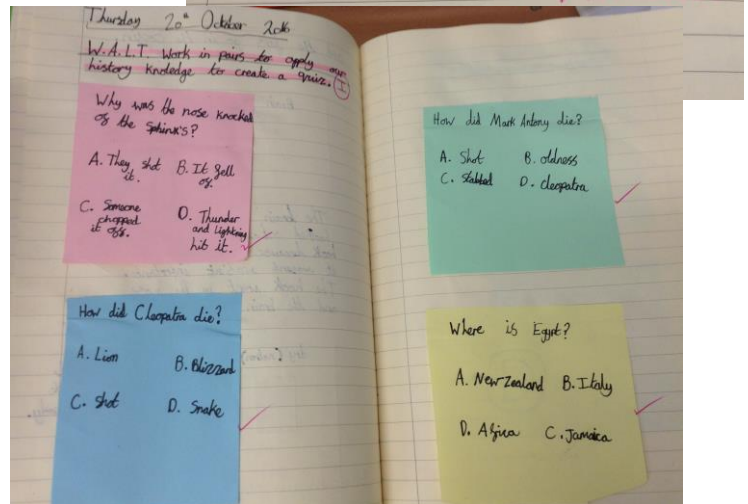 Thursday 20th October 2016
W.A.L.T. Work in pairs to apply our
history knoledge to create a quiz. I
Why was the nose knocked
of the Sphinx's?
A. They shot it. B. It fell of.
C. Someone chopped it off. D. Thunder and lightning hit it.
How did Cleopatra die?
A. Lion B. Blizzard
C. Shot D. Snake
How did Mark Antony die?
A. Shot B. oldness
C. Stabbed D. cleopatra
Where is Egypt?
A. New Zealand B. Italy
D. Africa C. Jamaica